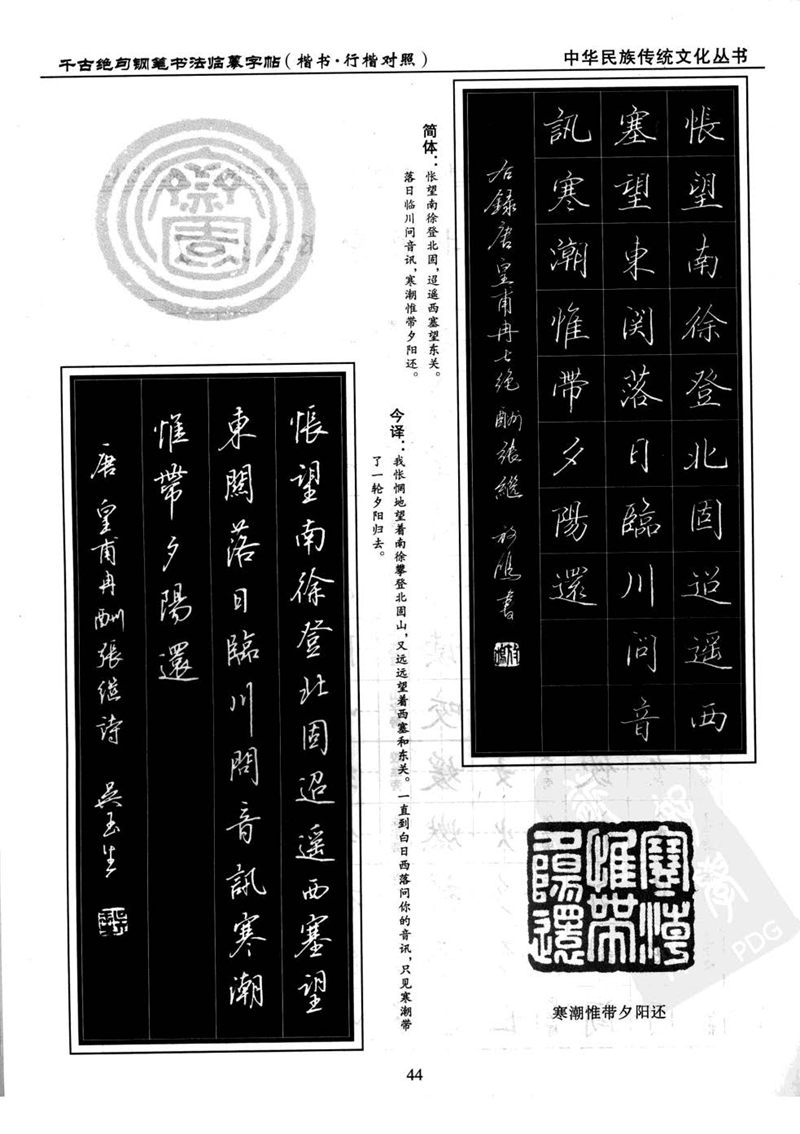 千古绝句钢笔书法临摹字帖(楷书·行楷对照)
中华民族传统文化丛书
悵望南徐登北固迢遥西
塞望東関落日臨川问音
訊寒潮惟帶夕陽還
右錄唐皇甫冉七绝酬張繼 书
简体：怅望南徐登北固，迢遥西塞望东关。
落日临川问音讯，寒潮惟带夕阳还。
今译：我怅惘地望着南徐攀登北固山，又远远望着西塞和东关。一直到白日西落问你的音讯，只见寒潮带
了一轮夕阳归去。
悵望南徐登北固迢遥西塞望
東關落日臨川問音訊寒潮
惟帶夕陽還
唐 皇甫冉酬張继诗 吴玉生
寒潮
惟带
夕陽還
寒潮惟带夕阳还
PDG
44